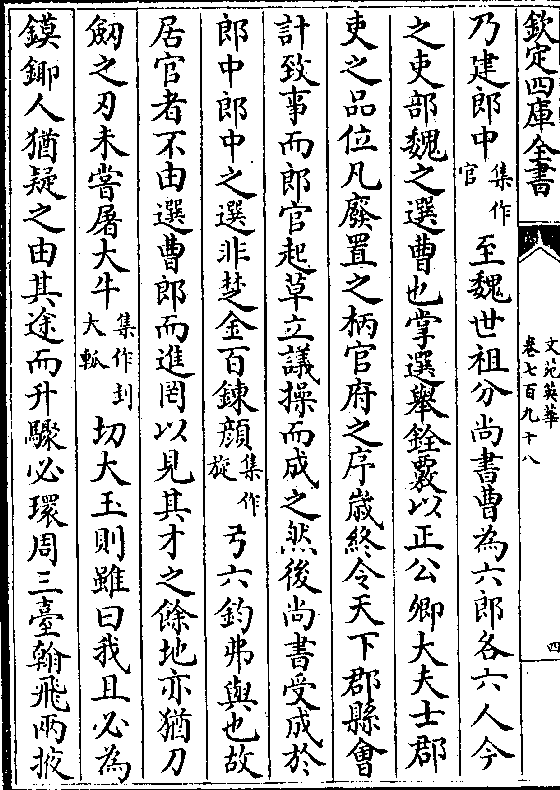 欽定四庫全書
文苑英華
卷七百九十八
四
乃建郎中集作官至魏世祖分尚書曹為六郎各六人今
之吏部魏之選曹也掌選舉銓覈以正公卿大夫士郡
吏之品位凡廢置之柄官府之序歲終令天下郡縣會
計致事而郎官起草立議操而成之然後尚書受成於
郎中郎中之選非楚金百鍊顏集作旋弓六鈞弗與也故
居官者不由選曹郎而進罔以見其才之餘地亦猶刀
劒之刃未嘗屠大牛集作刲大觚切大玉則雖曰我且必為
鏌鎁人猶疑之由其途而升驟必環周三臺翰飛兩掖